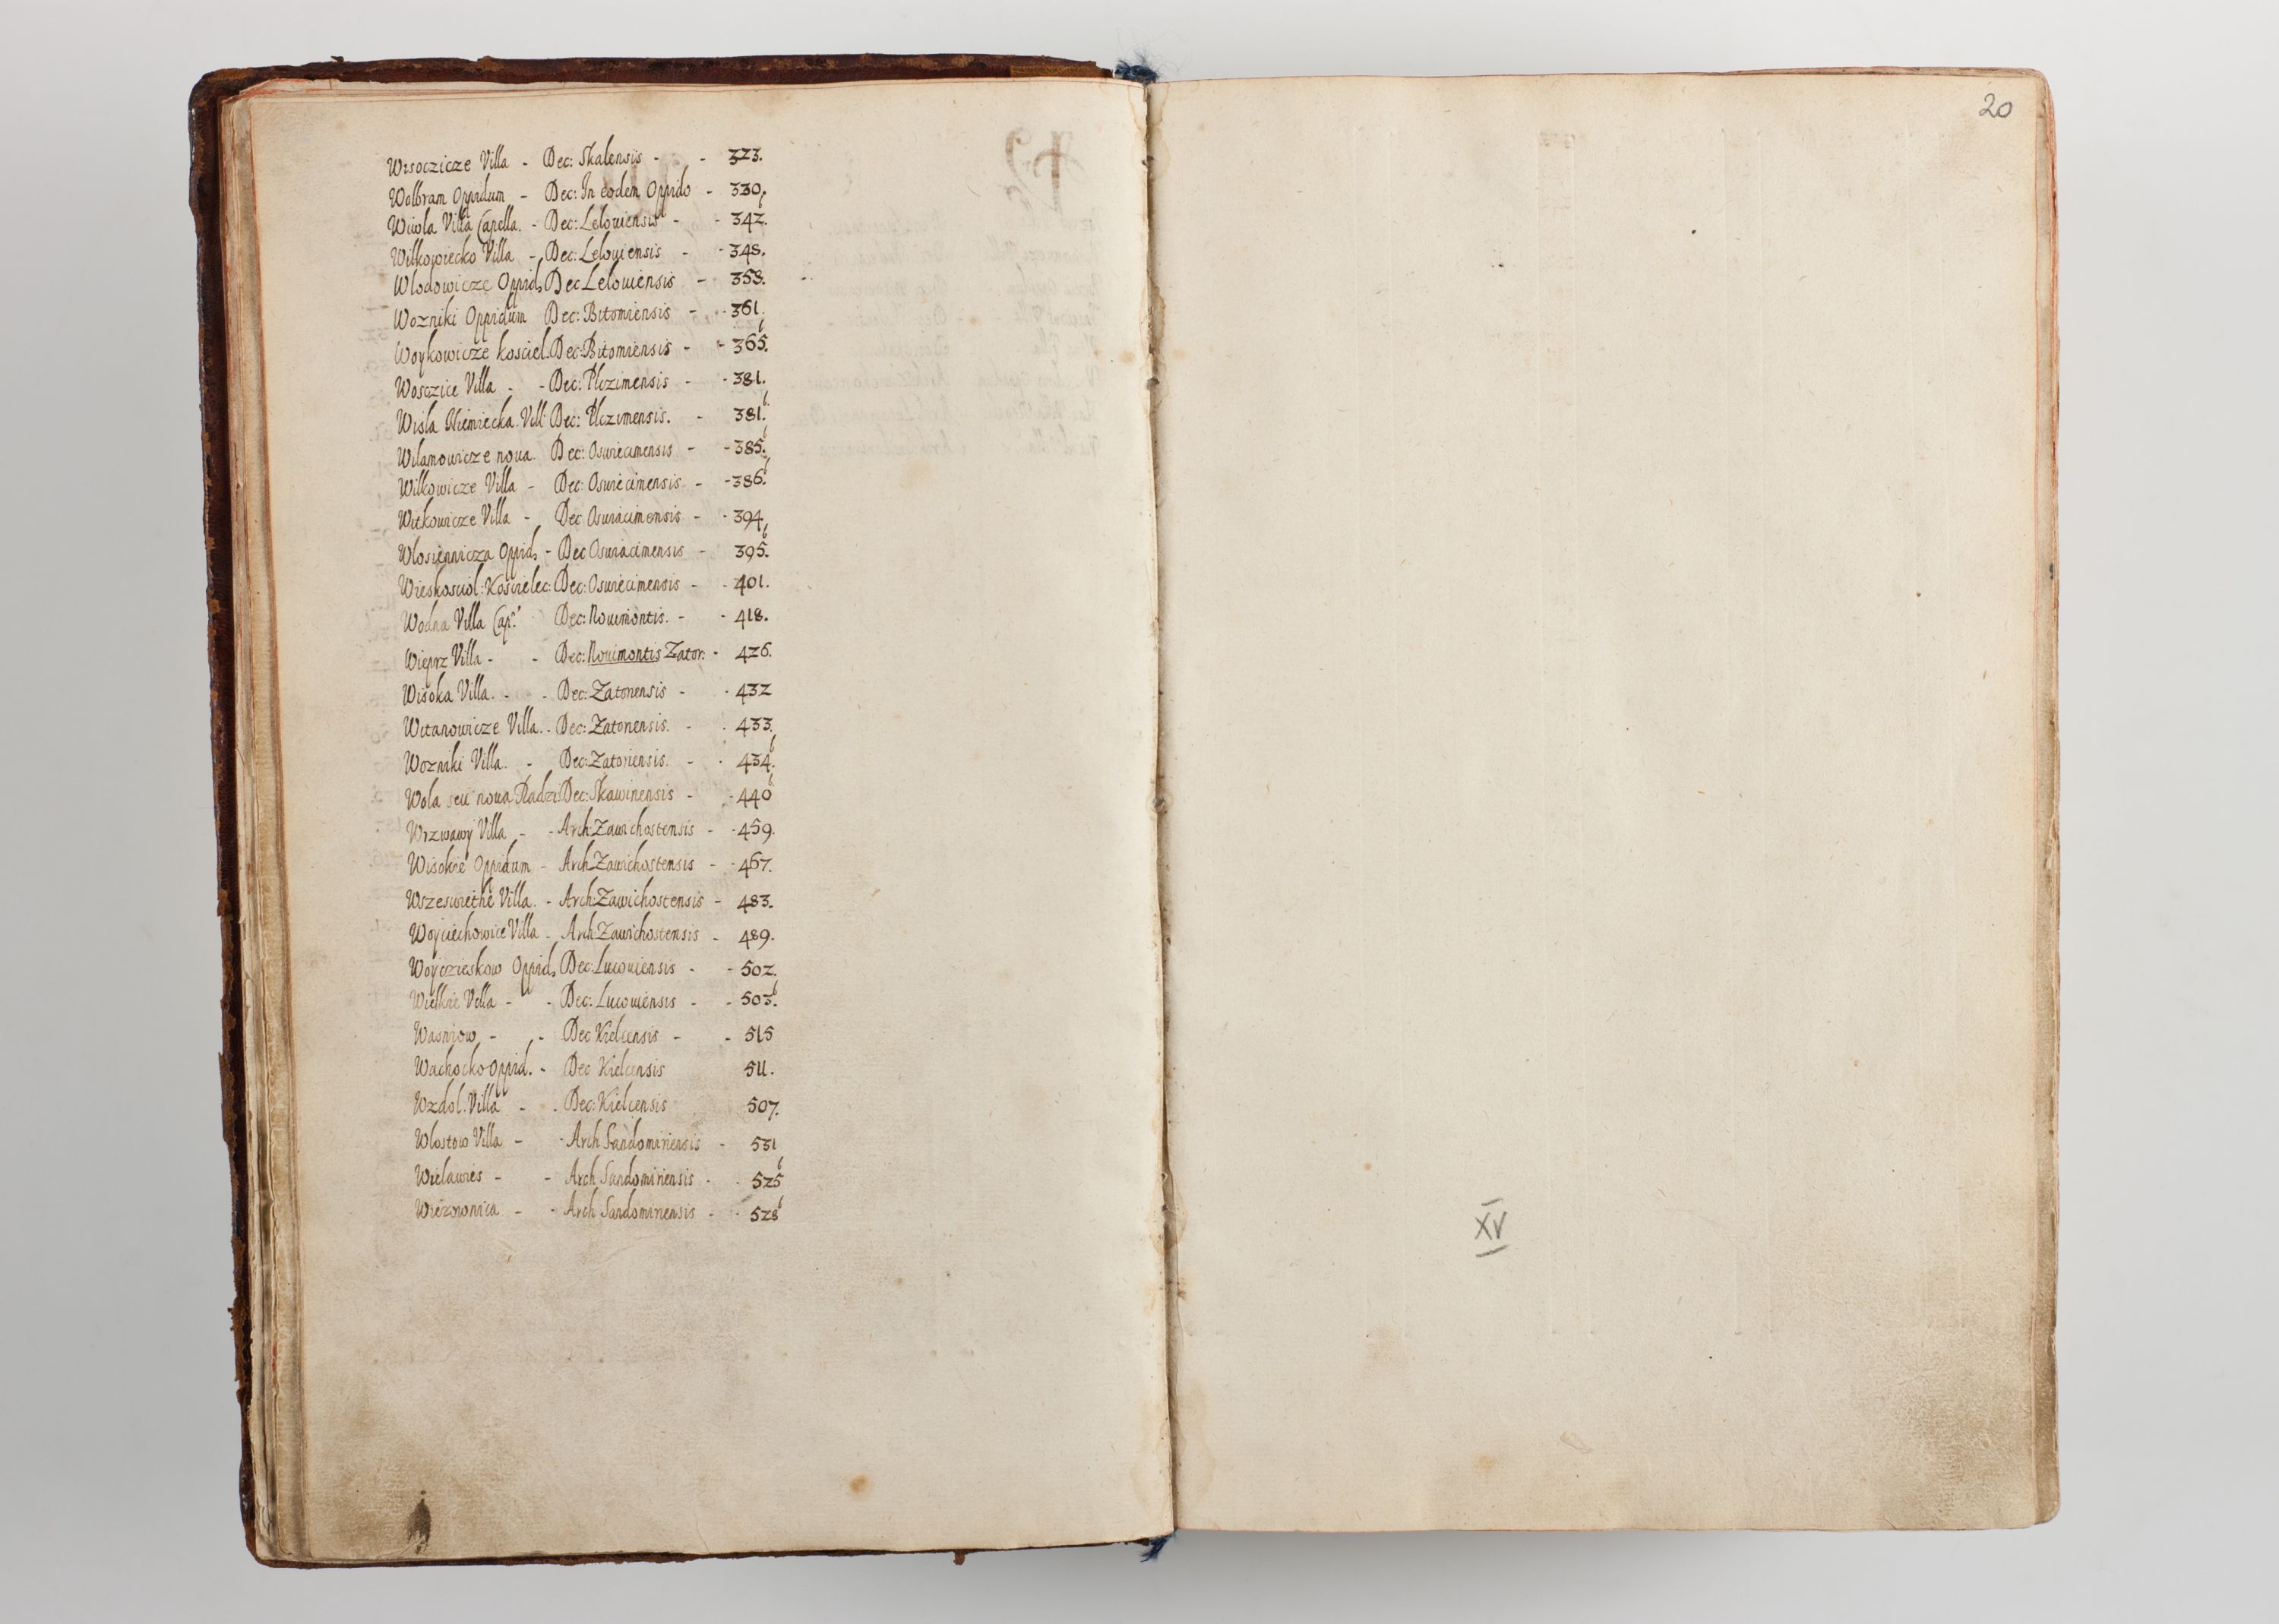 Wisoczicze Villa - Dec: Skalensis - - 323.
Wolbram Oppidum - Dec: In eodem Oppido - 330.
Wiwla Villa Capella. - Dec: Leloviensis - - 342. b
Wilkowiecko Villa - Dec: Leloviensis - - 348.
Wlodowicze Oppid. Dec Leloviensis - 358.
Wozniki Oppidum Dec: Bitomiensis - - 361.
Woykowicze kosciel. Dec: Bitomiensis - - 365. b
Wosczice Villa - - Dec: Plczimensis - - 381.
Wisla Niemiecka. Vill: Dec: Plczimensis. - 381. b
Wilamowicze nova. Dec: Oswiecimensis - - 385. b
Wilkowicze Villa - Dec: Oswiecimensis - - 386. b
Witkowicze Villa - Dec Oswiacimensis - - 394
Wlosiennicza Oppid. - Dec Oswiacimensis - 395. b
Wieskosciol: Koscielec: Dec: Oswiecimensis - - 401.
Wodna Villa Cap: Dec: Novimontis. - - 418.
Wieprz Villa - - Dec: Novimontis Zator: - 426.
Wisoka Villa. - - Dec: Zatoriensis - - 432
Witanowicze Villa. - Dec: Zatoriensis. - . 433.
Wozniki Villa. - Dec: Zatoriensis. - . 434. b
Wola seu nova Radzi: Dec: Skawinensis - - 440 b
Wrzwawy Villa - - Arch: Zawichostensis - - 459.
Wisokie Oppidum - Arch Zawichostensis - - 467.
Wszeswiethe Villa. - Arch: Zawichostensis - 483.
Woyciechowice Villa - Arch: Zawichostensis - 489.
Woyczieskow Oppid. Dec: Lucoviensis - - 502.
Wielkie Villa - - Dec: Lucoviensis - - 503. b
Wasniow - - Dec Kielcensis - - 515
Wachocko Oppid. - Dec Kielcensis 511.
Wzdol: Villa - . Dec: Kielcensis 507.
Wlostow Villa - - Arch Sandomiriensis - 531
Wielawies - - Arch Sandomiriensis - . 525 b
Wiezownica - - Arch Sandomiriensis - . 528 b
20
XV